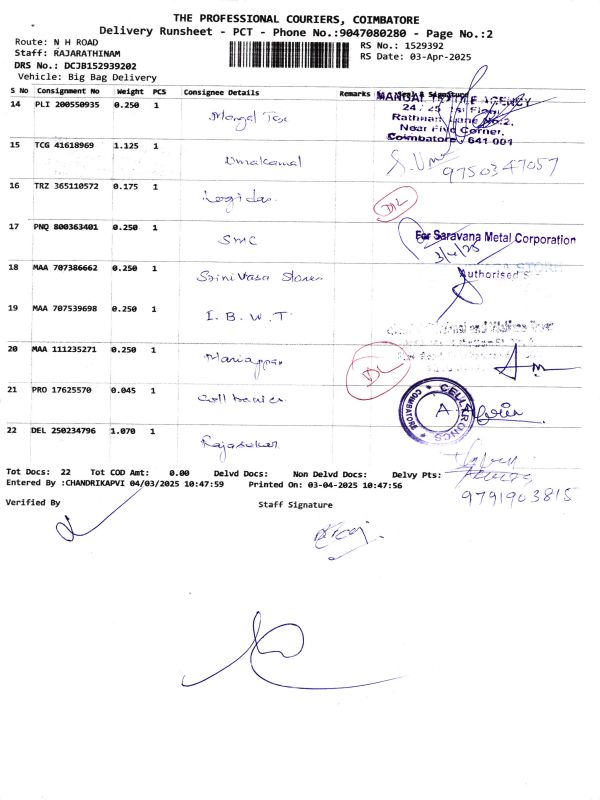 THE PROFESSIONAL COURIERS, COIMBATORE
Delivery Runsheet - PCT - Phone No.:9047080280 - Page No.:2
Route: N H ROAD
Staff: RAJARATHINAM
DRS No.: DCJB152939202
Vehicle: Big Bag Delivery
RS No.: 1529392
RS Date: 03-Apr-2025
S No Consignment No Weight PCS Consignee Details Remarks
14 PLI 200550935 0.250 1 Mangal Tex
MANGAL TEXTILE AGENCY
24 / 25 1st Floor
Rathinam Lane No:2,
Near Five Corner,
Coimbatore - 641 001
15 TCG 41618969 1.125 1 Umakamal
9750347057
16 TRZ 365110572 0.175 1 Logidas
DL
17 PNQ 800363401 0.250 1 SMC
For Saravana Metal Corporation
3/4/25
18 MAA 707386662 0.250 1 Srinivasa Stores
Authorised
19 MAA 707539698 0.250 1 I. B. W. T.
20 MAA 111235271 0.250 1 Mariappan
DL
21 PRO 17625570 0.045 1 Cell tronics
CELLTRONICS
COIMBATORE
22 DEL 250234796 1.070 1 Rajasekar
9791903815
Tot Docs: 22 Tot COD Amt: 0.00 Delvd Docs: Non Delvd Docs: Delvy Pts:
Entered By :CHANDRIKAPVI 04/03/2025 10:47:59 Printed On: 03-04-2025 10:47:56
Verified By
Staff Signature